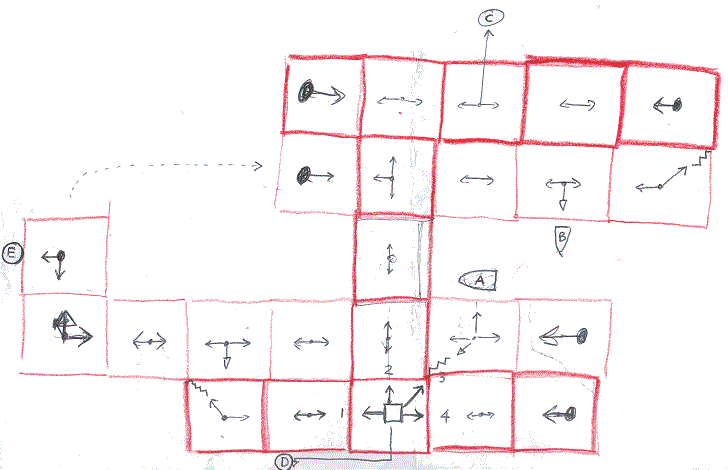 C
B
E
A
2
3
1
4
D